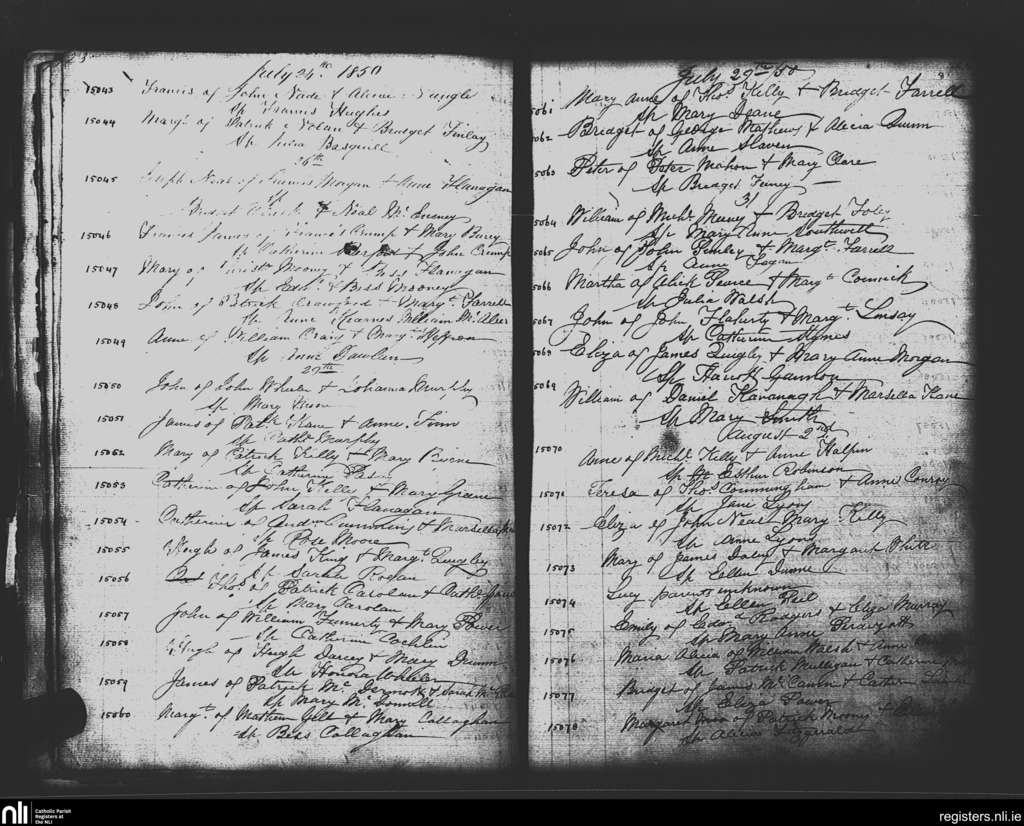 July 24th 1850
15043 Francis of John Nade & Alicia Nangle
Sp Francis Hughes
15044 Margt of Patrick Nolan & Bridget Finlay
Sp
26th
15045 Joseph Neal of Francis Morgan & Anne Flanagan
& Neal
15046 Francis James of Francis Crump & Mary Barry
Sp Catherine & John Crump
15047 Mary of Christr Mooney & Bess Flanagan
Sp & Bess Mooney
15048 John of Patrick Crawford & Margt Farrell
Sp Anne Kearnes William McAleer
15049 Anne of William Craig & Margt Heffron
Sp Anne Lawlen
29th
15050 John of John Wheeler & Johanna Murphy
Sp Mary
15051 James of Patk Kane & Anne Finn
Sp Cathe Murphy
15052 Mary of Patrick Reilly & Mary Byrne
Sp Catherine
15053 Catherine of John Kelly & Mary Graine
Sp Sarah Flanagan
15054 Catherine of Andw Cummins & Marsella
Sp Rose Moore
15055 Hugh of James King & Margt Quigley
Sp Sarah Rogan
15056 Thos of Patrick Carolan & Cathe
Sp Mary Carolan
15057 John of William Finnerty & Mary Power
Sp Catherine Coghlen
15058 Hugh of Hugh Darcey & Mary Dunn
Sp Honora Whelen
15059 James of Patrick McDermott & Sarah
Sp Mary McDonnell
15060 Margt of Mathew Gill & Mary Callaghan
Sp Bess Callaghan
July 29th /50
5061 Mary Anne of Thos Kelly & Bridget Farrell
Sp Mary Deane
5062 Bridget of George Mathews & Alicia Quinn
Sp Anne Slaven
5063 Peter of Peter Mahon & Mary Clare
Sp Bridget Feeney
31
5064 William of Michl & Bridget Foley
Sp Mary Anne Southwell
5065 John of John & Margt Farrell
Sp Anne Fagan
5066 Martha of Alick Pearce & Margt Cormick
Sp Julia Walsh
5067 John of John Flaherty & Margt Linsay
Sp Catherine Hymes
5068 Eliza of James Quigley & Mary Anne Morgan
Sp Gannon
5069 William of Daniel Kavanagh & Marsella Kane
Sp Mary Smith
August 2nd
15070 Anne of Michl Kelly & Anne Halpin
Sp Esther Robinson
15071 Teresa of Thos Cunningham & Anne Conroy
Sp Jane Lyons
15072 Eliza of John Neal Mary Kelly
Sp Anne Lyons
15073 Mary of James Daly & Margaret White
Sp Ellen Dunne
15074 Lucy parents unknown
Sp Ellen Neil
15075 Emily of Edwd Rodgers & Eliza Murray
Sp Mary Anne
15076 Maria Alicia of William Walsh & Anne
Sp Patrick Mulligan & Catherine
15077 Bridget of James McCann & Cathern
Sp Eliza Power
15078 Margaret of Patrick Mooney &
Sp Alicia Fitzgerald
nli
Catholic Parish
Registers at
the NLI
registers.nli.ie